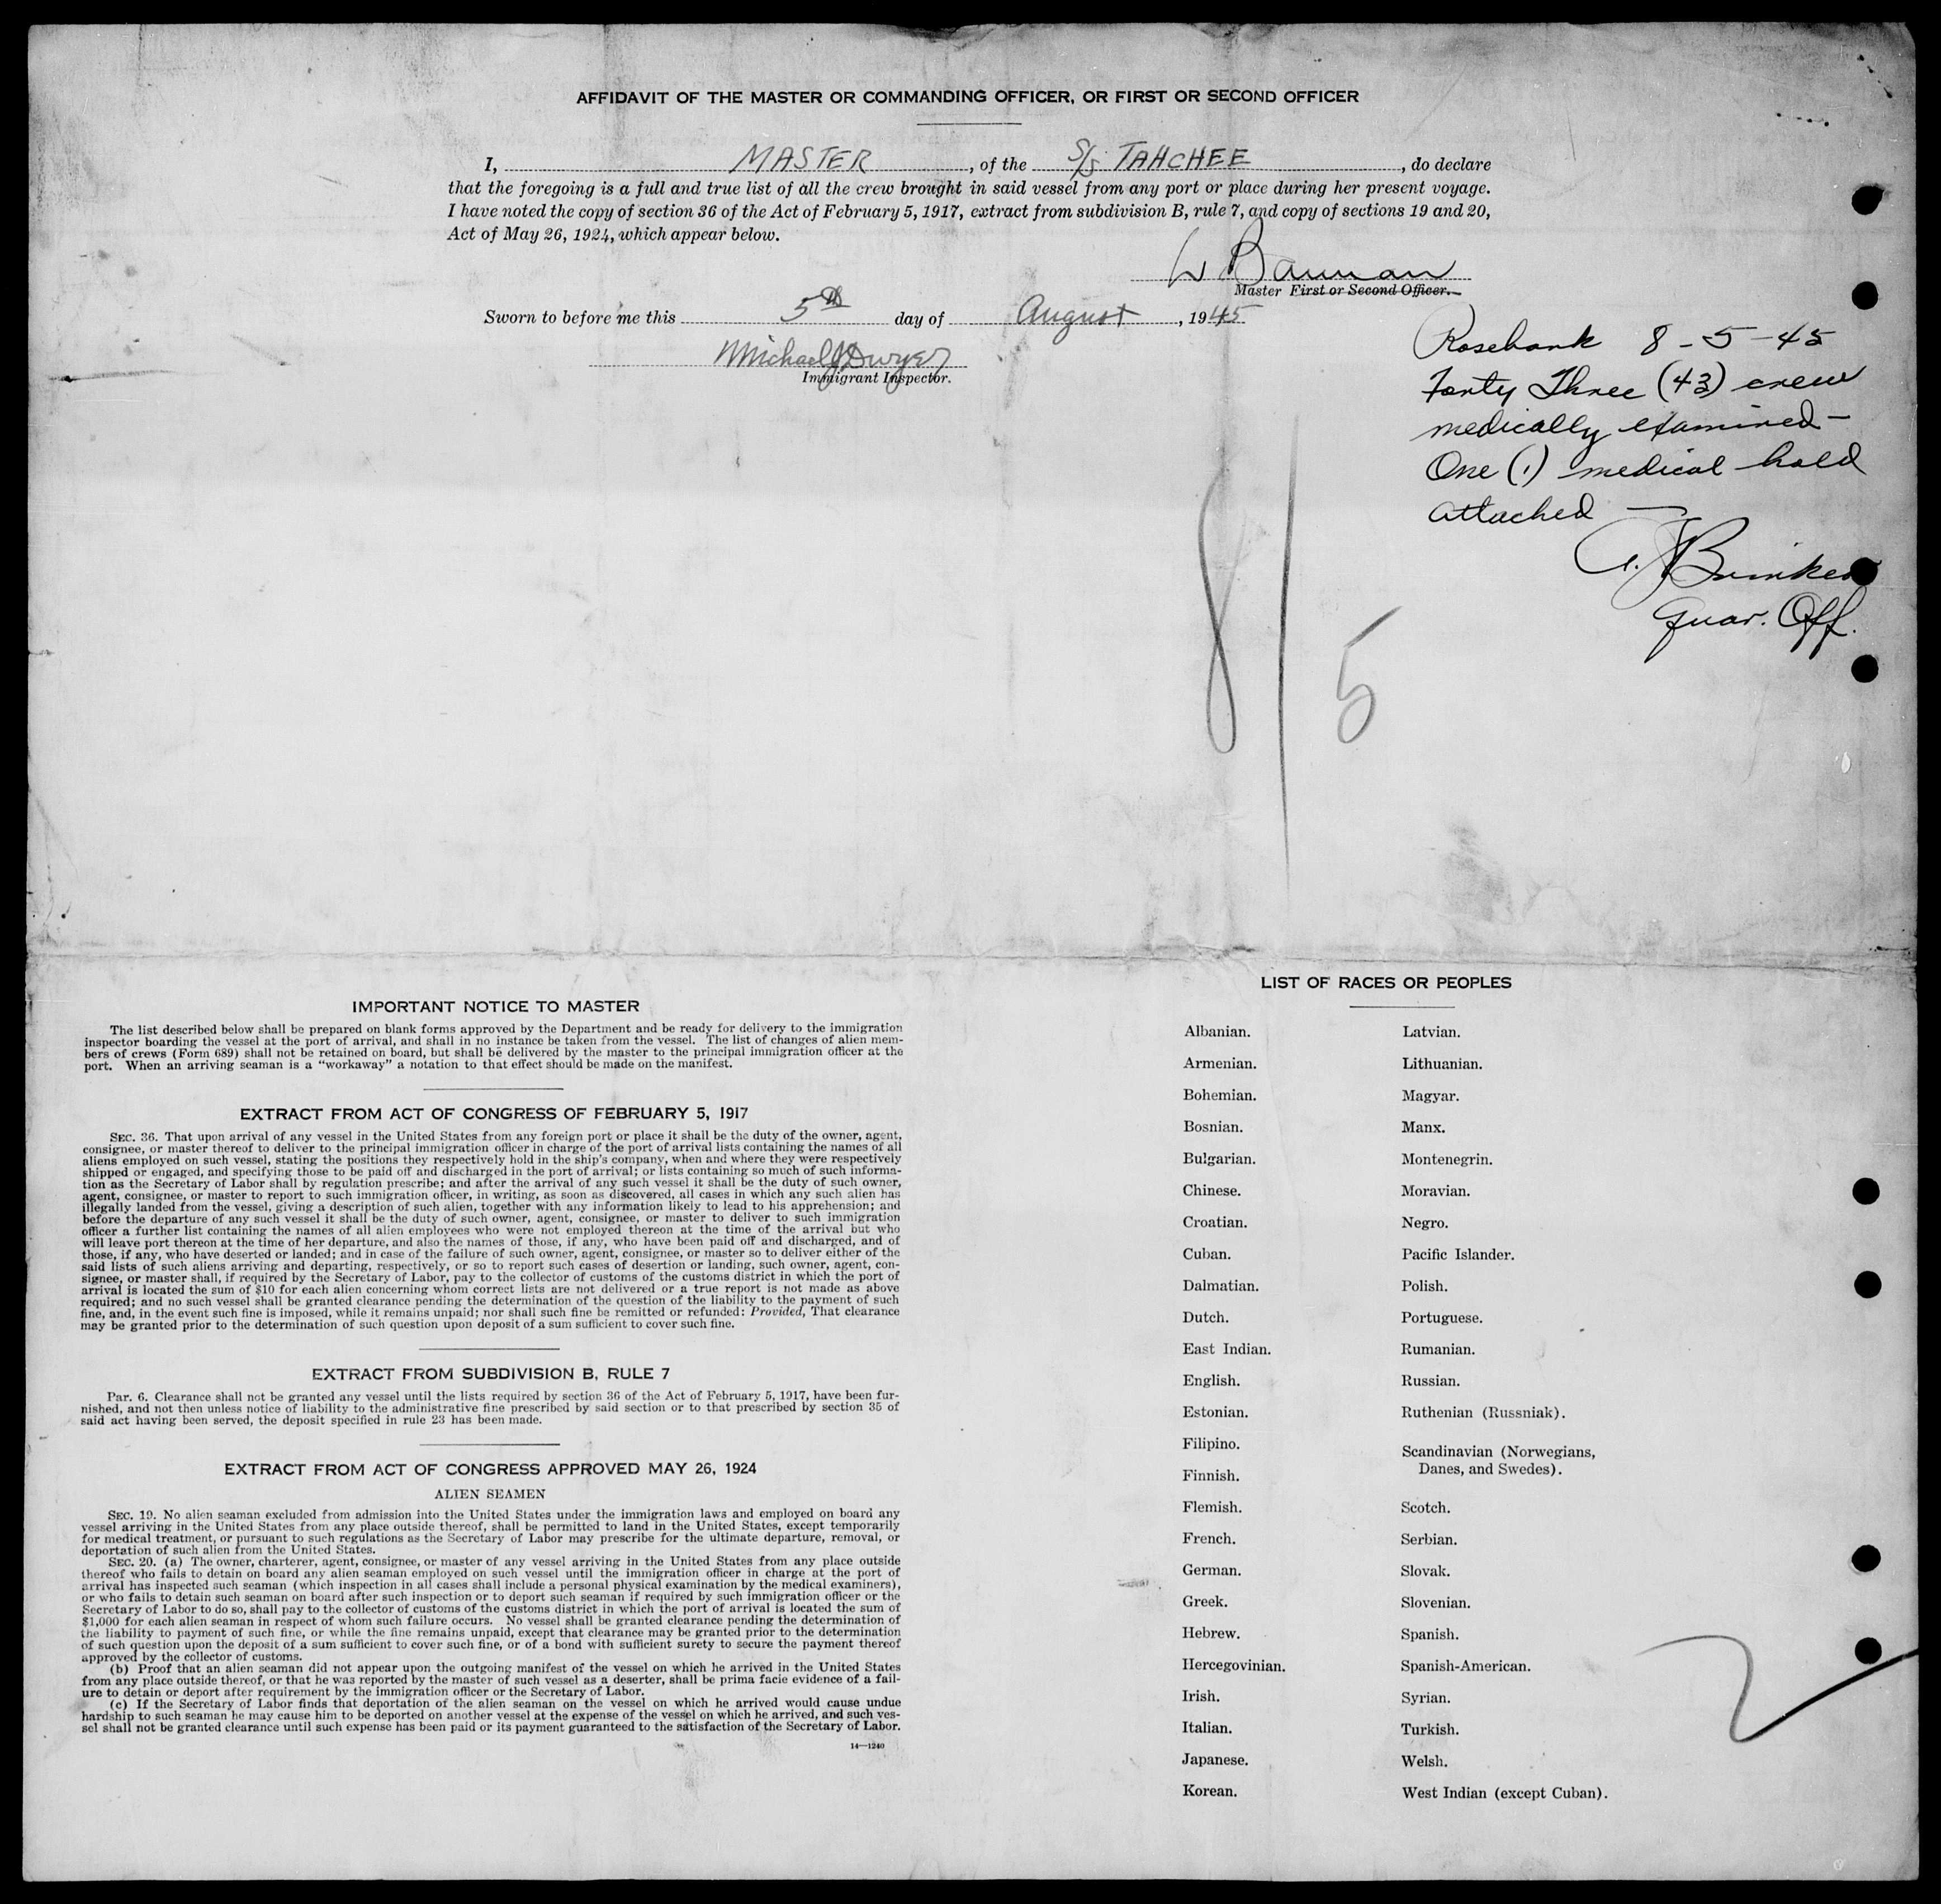 AFFIDAVIT OF THE MASTER OR COMMANDING OFFICER, OR FIRST OR SECOND OFFICER
I, MASTER, of the S/S TAHCHEE, do declare
that the foregoing is a full and true list of all the crew brought in said vessel from any port or place during her present voyage.
I have noted the copy of section 36 of the Act of February 5, 1917, extract from subdivision B, rule 7, and copy of sections 19 and 20,
Act of May 26, 1924, which appear below.
Master First or Second Officer.
Sworn to before me this 5th day of August, 1945
Michael J Dwyer
Immigrant Inspector.
Rosebank 8-5-45
Forty Three (43) crew
medically examined—
One (1) medical hold
attached —
Quar. Off.
8/5
IMPORTANT NOTICE TO MASTER
The list described below shall be prepared on blank forms approved by the Department and be ready for delivery to the immigration
inspector boarding the vessel at the port of arrival, and shall in no instance be taken from the vessel. The list of changes of alien mem-
bers of crews (Form 689) shall not be retained on board, but shall be delivered by the master to the principal immigration officer at the
port. When an arriving seaman is a "workaway" a notation to that effect should be made on the manifest.
EXTRACT FROM ACT OF CONGRESS OF FEBRUARY 5, 1917
SEC. 36. That upon arrival of any vessel in the United States from any foreign port or place it shall be the duty of the owner, agent,
consignee, or master thereof to deliver to the principal immigration officer in charge of the port of arrival lists containing the names of all
aliens employed on such vessel, stating the positions they respectively hold in the ship's company, when and where they were respectively
shipped or engaged, and specifying those to be paid off and discharged in the port of arrival; or lists containing so much of such informa-
tion as the Secretary of Labor shall by regulation prescribe; and after the arrival of any such vessel it shall be the duty of such owner,
agent, consignee, or master to report to such immigration officer, in writing, as soon as discovered, all cases in which any such alien has
illegally landed from the vessel, giving a description of such alien, together with any information likely to lead to his apprehension; and
before the departure of any such vessel it shall be the duty of such owner, agent, consignee, or master to deliver to such immigration
officer a further list containing the names of all alien employees who were not employed thereon at the time of the arrival but who
will leave port thereon at the time of her departure, and also the names of those, if any, who have been paid off and discharged, and of
those, if any, who have deserted or landed; and in case of the failure of such owner, agent, consignee, or master so to deliver either of the
said lists of such aliens arriving and departing, respectively, or so to report such cases of desertion or landing, such owner, agent, con-
signee, or master shall, if required by the Secretary of Labor, pay to the collector of customs of the customs district in which the port of
arrival is located the sum of $10 for each alien concerning whom correct lists are not delivered or a true report is not made as above
required; and no such vessel shall be granted clearance pending the determination of the question of the liability to the payment of such
fine, and, in the event such fine is imposed, while it remains unpaid; nor shall such fine be remitted or refunded: Provided, That clearance
may be granted prior to the determination of such question upon deposit of a sum sufficient to cover such fine.
EXTRACT FROM SUBDIVISION B, RULE 7
Par. 6. Clearance shall not be granted any vessel until the lists required by section 36 of the Act of February 5, 1917, have been fur-
nished, and not then unless notice of liability to the administrative fine prescribed by said section or to that prescribed by section 35 of
said act having been served, the deposit specified in rule 23 has been made.
EXTRACT FROM ACT OF CONGRESS APPROVED MAY 26, 1924
ALIEN SEAMEN
SEC. 19. No alien seaman excluded from admission into the United States under the immigration laws and employed on board any
vessel arriving in the United States from any place outside thereof, shall be permitted to land in the United States, except temporarily
for medical treatment, or pursuant to such regulations as the Secretary of Labor may prescribe for the ultimate departure, removal, or
deportation of such alien from the United States.
SEC. 20. (a) The owner, charterer, agent, consignee, or master of any vessel arriving in the United States from any place outside
thereof who fails to detain on board any alien seaman employed on such vessel until the immigration officer in charge at the port of
arrival has inspected such seaman (which inspection in all cases shall include a personal physical examination by the medical examiners),
or who fails to detain such seaman on board after such inspection or to deport such seaman if required by such immigration officer or the
Secretary of Labor to do so, shall pay to the collector of customs of the customs district in which the port of arrival is located the sum of
$1,000 for each alien seaman in respect of whom such failure occurs. No vessel shall be granted clearance pending the determination of
the liability to payment of such fine, or while the fine remains unpaid, except that clearance may be granted prior to the determination
of such question upon the deposit of a sum sufficient to cover such fine, or of a bond with sufficient surety to secure the payment thereof
approved by the collector of customs.
(b) Proof that an alien seaman did not appear upon the outgoing manifest of the vessel on which he arrived in the United States
from any place outside thereof, or that he was reported by the master of such vessel as a deserter, shall be prima facie evidence of a fail-
ure to detain or deport after requirement by the immigration officer or the Secretary of Labor.
(c) If the Secretary of Labor finds that deportation of the alien seaman on the vessel on which he arrived would cause undue
hardship to such seaman he may cause him to be deported on another vessel at the expense of the vessel on which he arrived, and such ves-
sel shall not be granted clearance until such expense has been paid or its payment guaranteed to the satisfaction of the Secretary of Labor.
14—1240
LIST OF RACES OR PEOPLES
Albanian.
Armenian.
Bohemian.
Bosnian.
Bulgarian.
Chinese.
Croatian.
Cuban.
Dalmatian.
Dutch.
East Indian.
English.
Estonian.
Filipino.
Finnish.
Flemish.
French.
German.
Greek.
Hebrew.
Hercegovinian.
Irish.
Italian.
Japanese.
Korean.
Latvian.
Lithuanian.
Magyar.
Manx.
Montenegrin.
Moravian.
Negro.
Pacific Islander.
Polish.
Portuguese.
Rumanian.
Russian.
Ruthenian (Russniak).
Scandinavian (Norwegians,
Danes, and Swedes).
Scotch.
Serbian.
Slovak.
Slovenian.
Spanish.
Spanish-American.
Syrian.
Turkish.
Welsh.
West Indian (except Cuban).